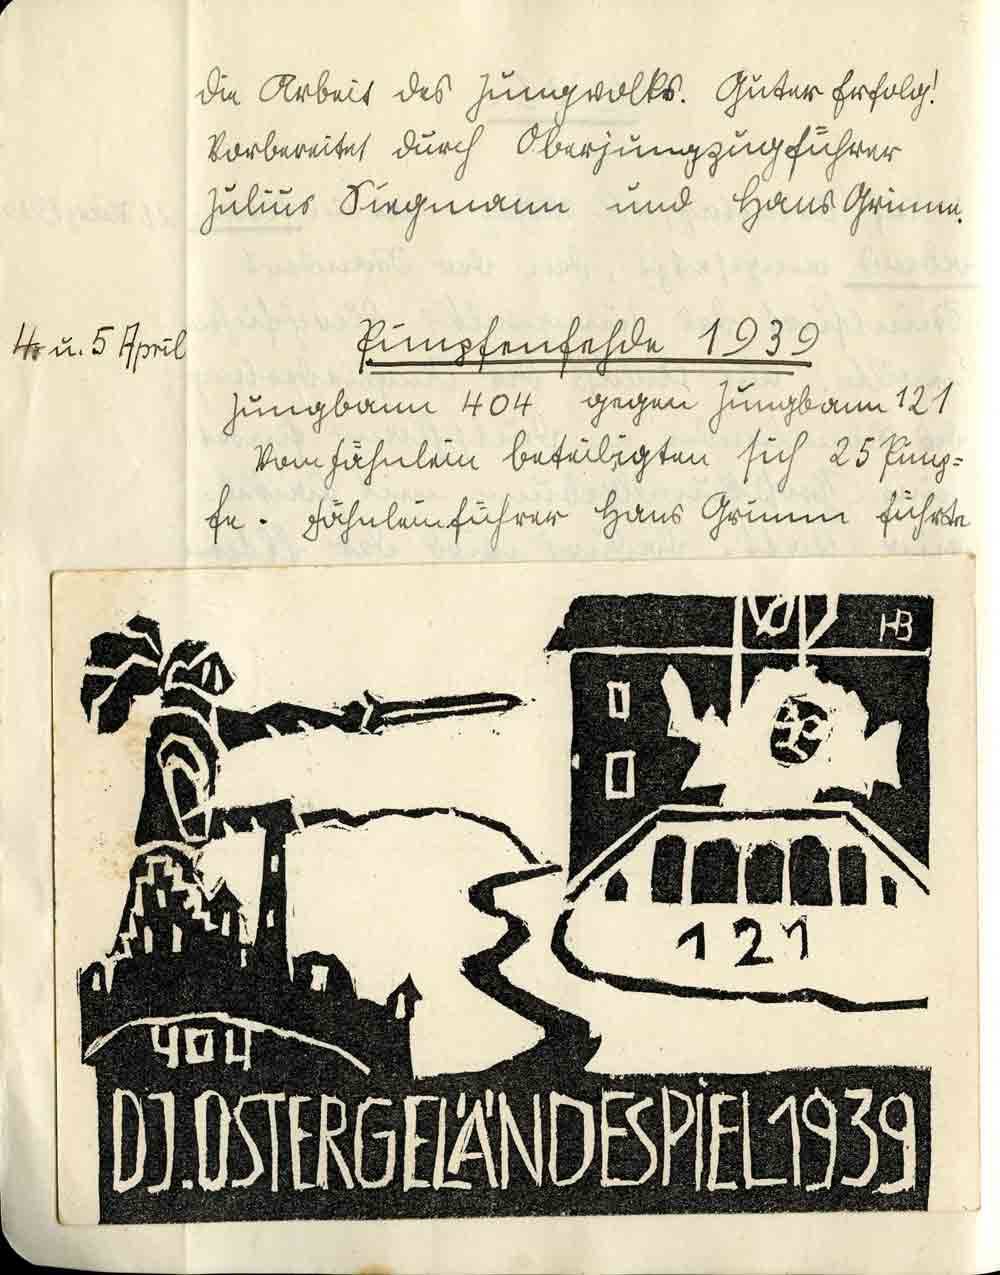 die Arbeit des Jungvolks. Guter Erfolg!
Vorbereitet durch Oberjungzugführer
Julius Siegmann und Hans Grimm.
4. u. 5 April
Pimpfenfehde 1939
Jungbann 404 gegen Jungbann 121
Vom Fähnlein beteiligten sich 25 Pimp=
fe. Fähnleinführer Hans Grimm führte
HB
121
404
DJ. OSTERGELÄNDESPIEL 1939